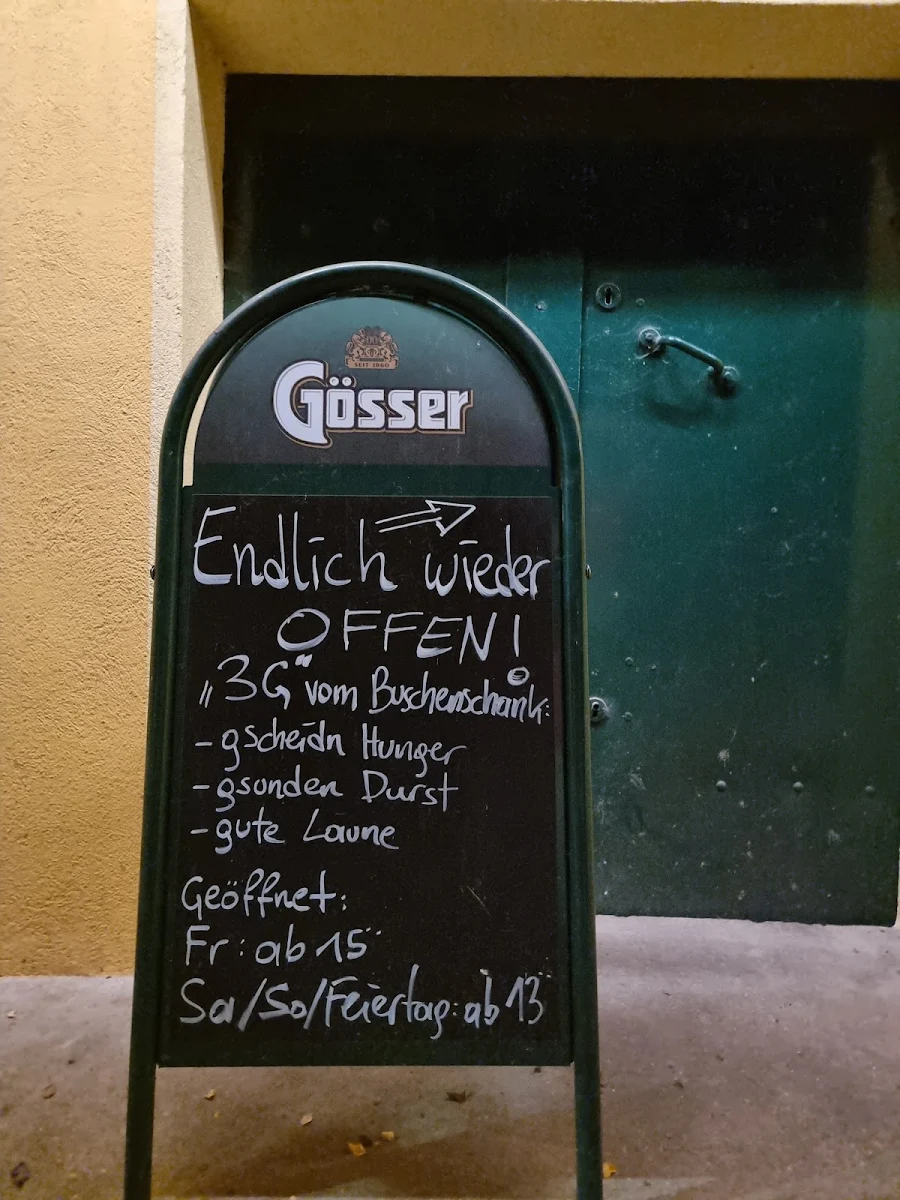 SEIT 1860
Gösser
Endlich wieder
OFFEN!
„3G" vom Buschenschank:
- gscheidn Hunger
- gsunden Durst
- gute Laune
Geöffnet:
Fr: ab 15ºº
Sa/So/Feiertag: ab 13ºº